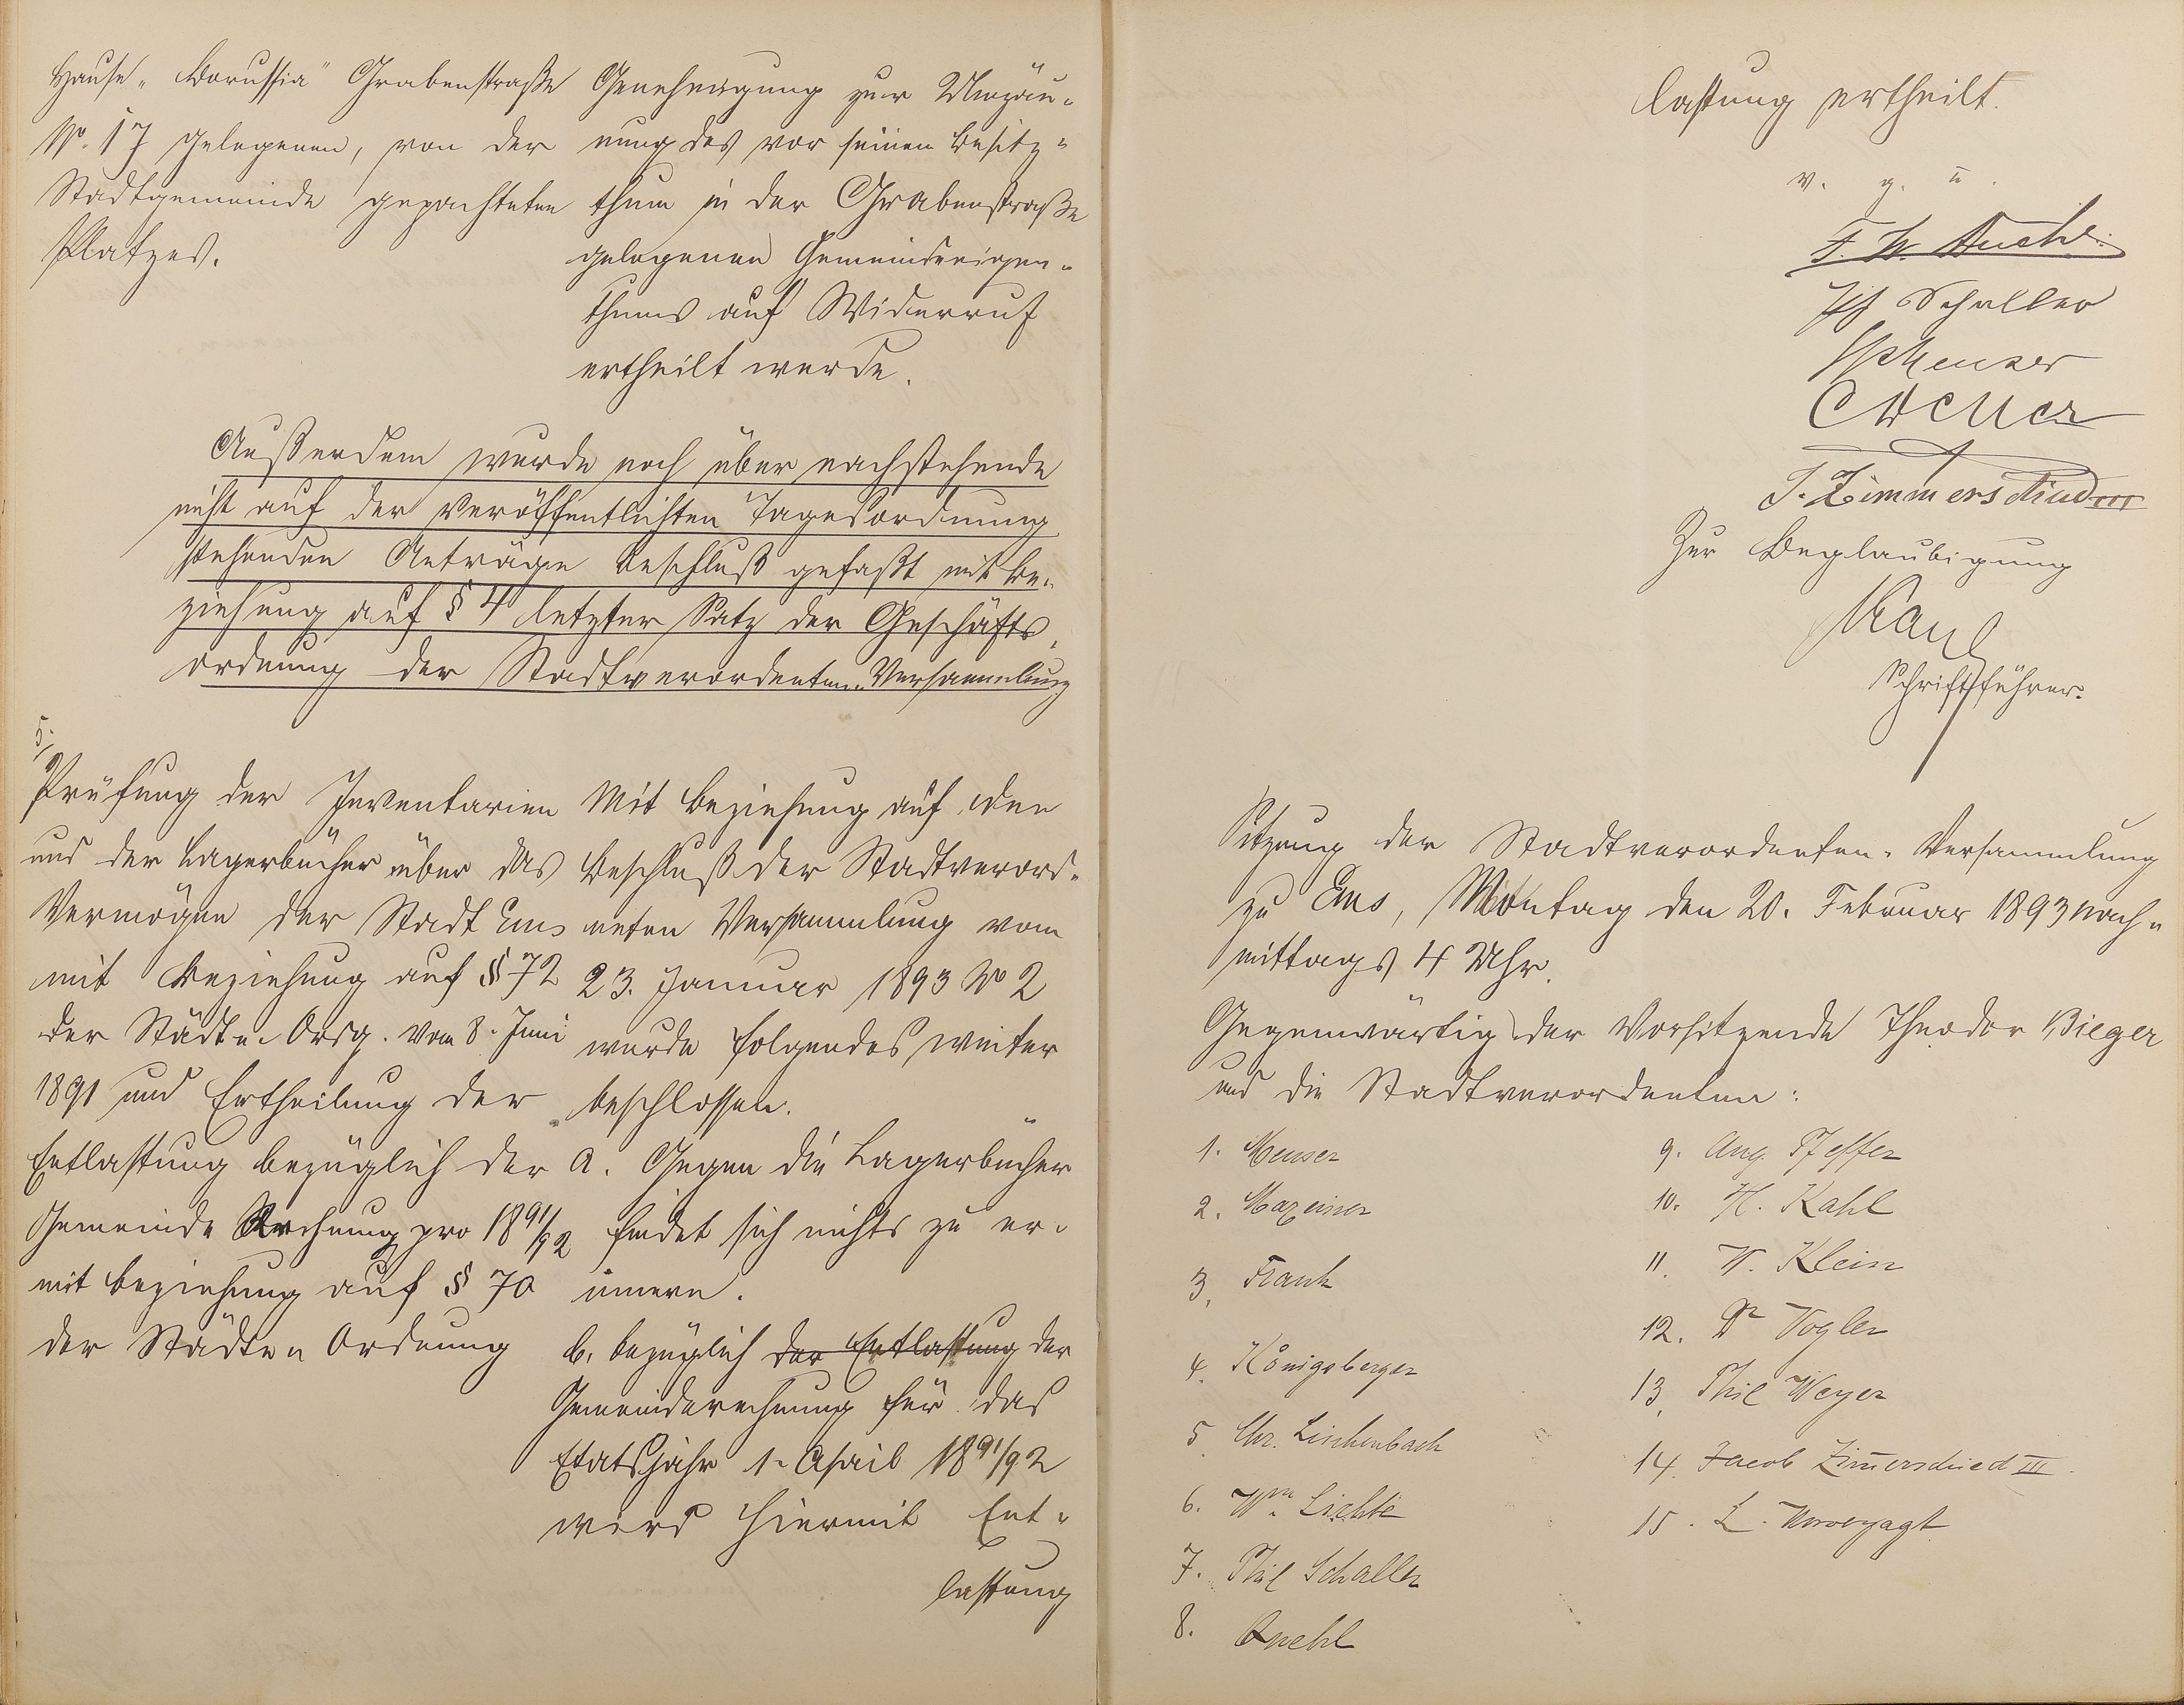 Hause „Borussia" Grabenstraße
No. 17 gelegenen, von der
Stadtgemeinde gepachteten
Platzes.
Genehmigung zur Umzäu-
nung des vor seinem Besitz-
thum in der Grabenstraße
gelegenen Gemeindeeigen-
thums auf Widerruf
ertheilt werde.
Außerdem wurde noch über nachstehende
nicht auf der veröffentlichten Tagesordnung
stehenden Anträge Beschluß gefaßt mit Be-
ziehung auf § 4 letzter Satz der Geschäfts-
ordnung der Stadtverordneten-Versammlung
5.
Prüfung der Inventarien
und der Lagerbücher über das
Vermögen der Stadt Ems
mit Beziehung auf § 72
der Städte-Ordg. vom 8. Juni
1891 und Ertheilung der
Entlastung bezüglich der
Gemeinde Rechnung pro 1891/92
mit Beziehung auf § 70
der Städte-Ordnung
Mit Beziehung auf den
Beschluß der Stadtverord-
neten Versammlung vom
23. Januar 1893 No 2
wurde folgendes weiter
beschlossen.
a. Gegen die Lagerbücher
findet sich nichts zu er-
innern.
b. bezüglich der Entlastung der
Gemeinderechnung für das
Etatsjahr 1. April 1891/92
wird hiermit Ent-
lastung
lastung ertheilt.
v. g. u.
F. W.
Ph Schaller
Meuser
J. Zimmerschied III
Zur Beglaubigung
Schriftführer.
Sitzung der Stadtverordneten-Versammlung
zu Ems, Montag den 20. Februar 1893 nach-
mittags 4 Uhr.
Gegenwärtig der Vorsitzende Theodor Bieger
und die Stadtverordneten:
1. Meuser
2. Mazeiner
3. Frank
4. Königsberger
5. Chr. Linkenbach
6. Wm. Lichte
7. Phil Schaller
8.
9. Aug. Pfeffer
10. H. Kahl
11. W. Klein
12. Dr Vogler
13. Phil Weyer
14. Jacob Zimerschied III.
15. L. Unverzagt